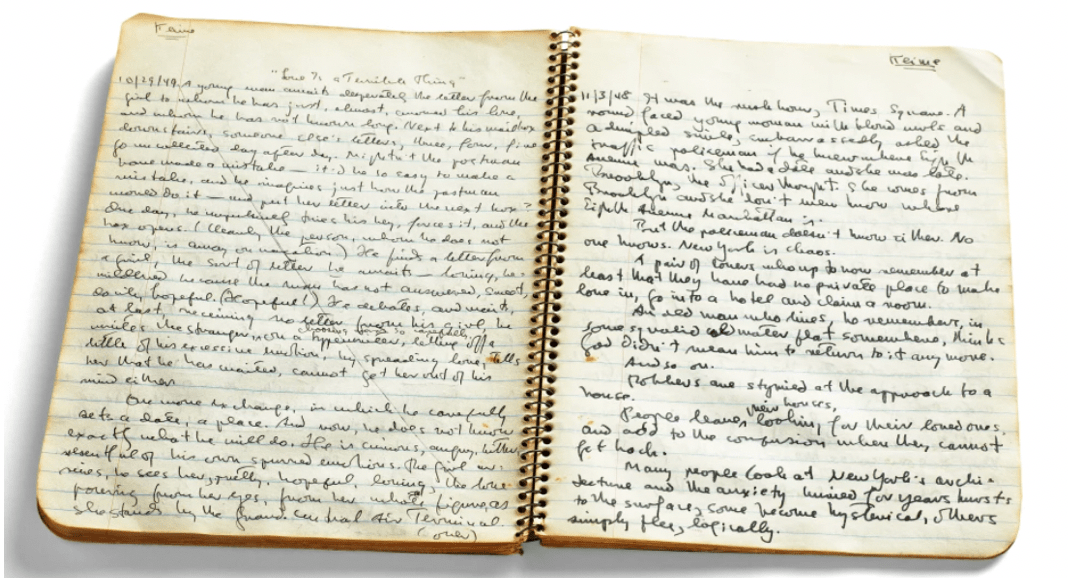 "Love Is a Terrible Thing"
10/29/49 A young man awaits desperately the letter from the
girl to whom he has just, almost, avowed his love,
and whom he has not known long. Next to his mailbox
downstairs, someone else's letters, three, four, five
go uncollected day after day. Mightn't the postman
have made a mistake — it'd be so easy to make a
mistake, and he imagines just how the postman
would do it — and put her letter into the next box?
One day, he tries his key, forces it, and the
box opens. (Clearly the person, whom he does not
know, is away on vacation.) He finds a letter from
a girl, the sort of letter he awaits — loving, be-
wildered because the man has not answered, sweet,
hopeful. (Hopeful!) He debates, and waits,
at last, receiving no letter from his girl, he
writes the stranger on a typewriter, letting off a
little of his excessive emotion, his spreading love, tells
her that he has waited, cannot get her out of his
mind either.
One more exchange, in which he carefully
sets a date, a place. And now, he does not know
exactly what he will do. He is curious, angry, bitter,
resentful of his own spurned emotions. The girl ar-
rives, he sees her, pretty, hopeful, loving, the love
pouring from her eyes, from her whole figure, as
she stands by the Grand Central Air Terminal
(over)
11/3/48 It was the rush hour, Times Square. A
round faced young woman with blond curls and
a dimpled smile, embarrassedly asked the
traffic policeman if he knew where Eighth
Avenue was. She had a date and she was late.
Brooklyn, the officer thought. She comes from
Brooklyn and she don't even know where
Eighth Avenue Manhattan is.
But the policeman doesn't know either. No
one knows. New York is chaos.
A pair of lovers who up to now remember at
least that they have had no private place to make
love in, go into a hotel and claim a room.
An old man who lives, he remembers, in
some squalid cold water flat somewhere, thinks
God didn't mean him to return to it any more.
And so on.
Robbers are stymied at the approach to a
house.
People leave their houses, looking for their loved ones,
and add to the confusion when they cannot
get back.
Many people look at New York's archi-
tecture and the anxiety buried for years bursts
to the surface, some become hysterical, others
simply flee, logically.